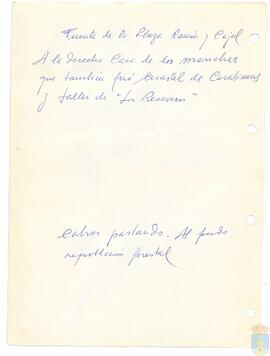 Fuente de la Plaza Ramón y Cajal
A la derecha Casa de los
que también fué Cuartel de Carabineros
y taller de "Los
Cabras pastando. Al fondo
repoblación forestal